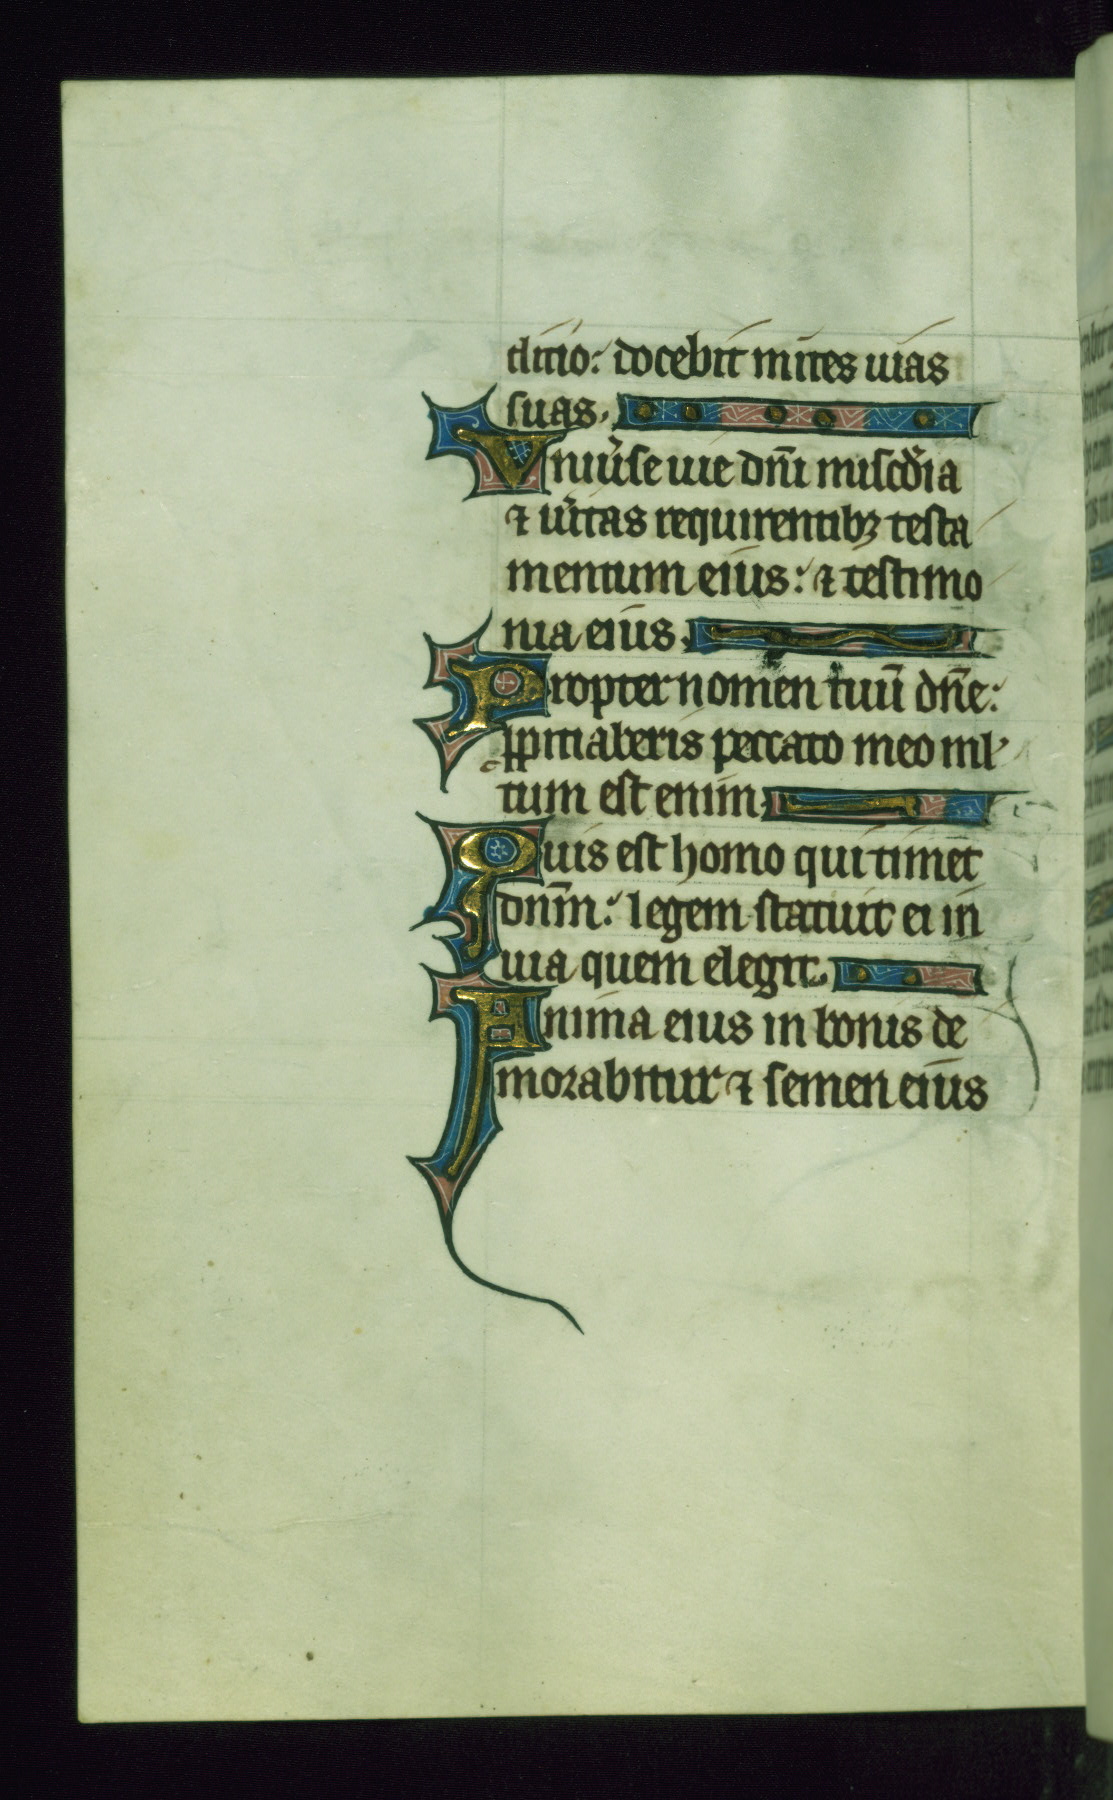 dicio: docebit mites uias
suas.
Uniũse uie dñi miscd̃ia
⁊ ũitas requirentibꝫ testa
mentum eius: ⁊ testimo
nia eius.
Propter nomen tuũ dñe:
ꝓpitiaberis peccato meo ml'
tum est enim
Quis est homo qui timet
dñm: legem statuit ei in
uia quem elegit.
Anima eius in bonis de
morabitur ⁊ semen eius